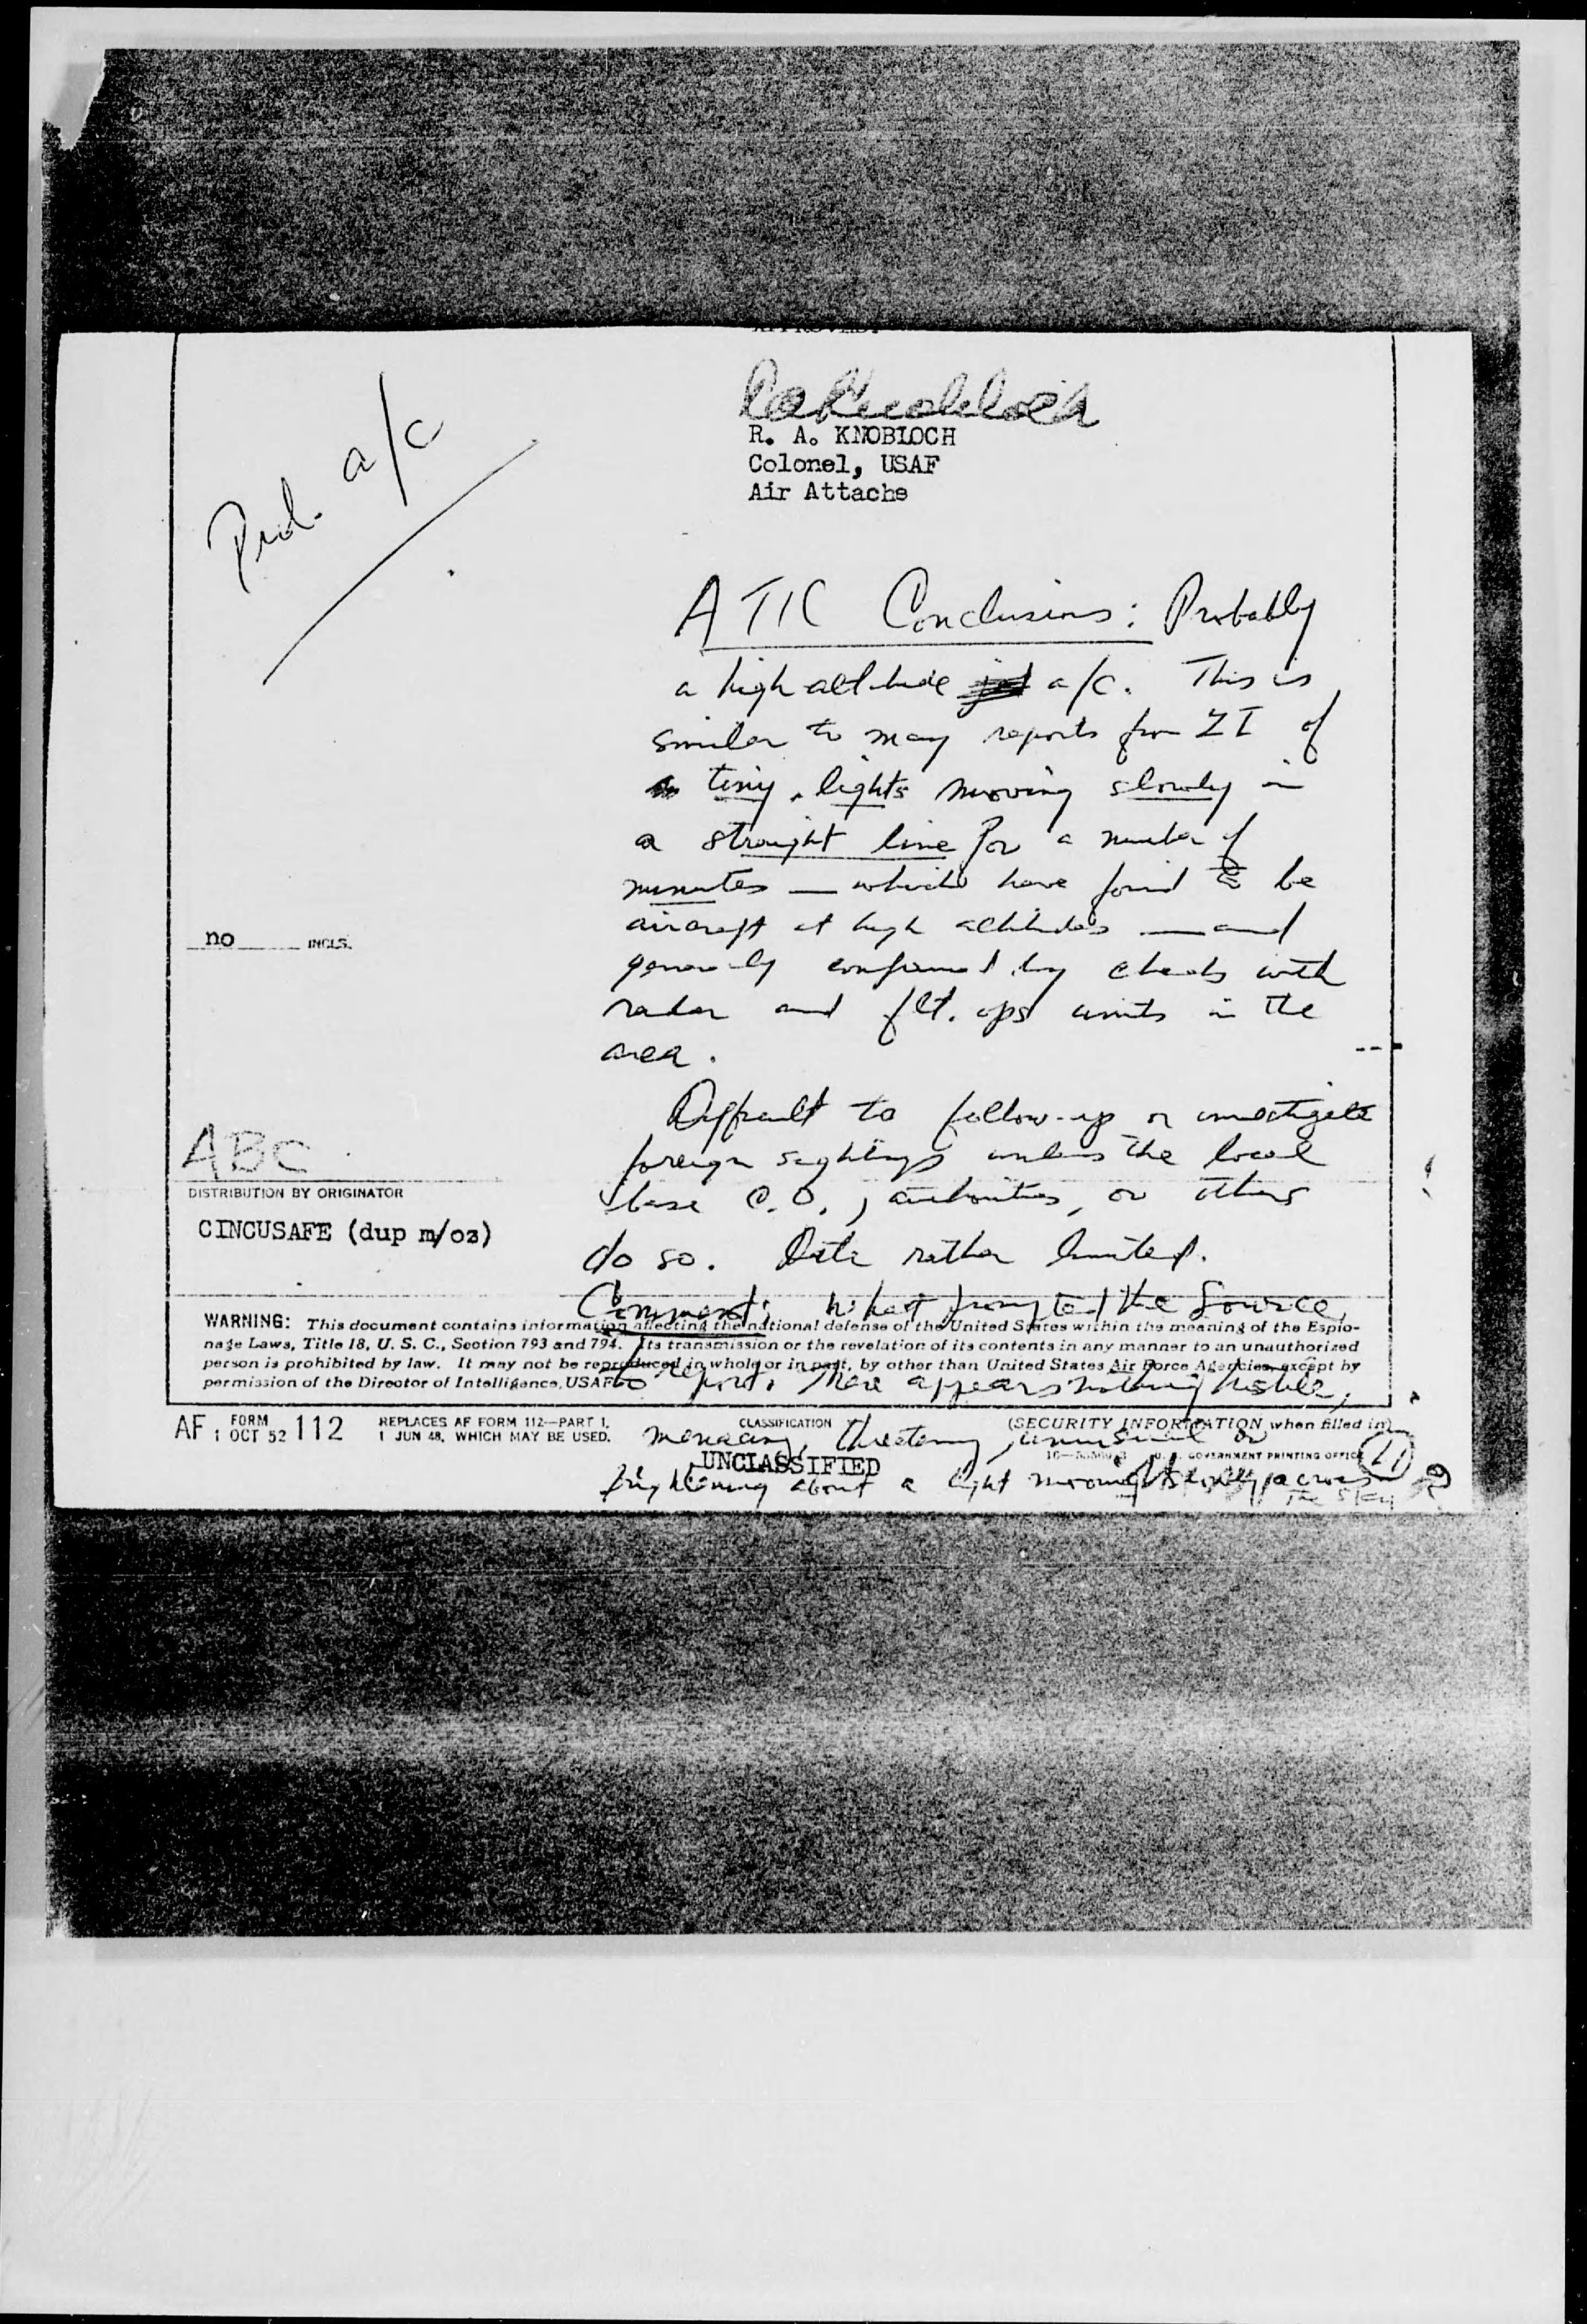 APPROVED:
R. A. KNOBLOCH
Colonel, USAF
Air Attache
Prob. a/c
ATIC Conclusions: Probably
a high altitude a/c. This is
similar to many reports from ZI of
tiny lights moving slowly in
a straight line for a number of
minutes — which have found to be
aircraft at high altitudes — and
generally confirmed by checks with
radar and flt. ops units in the
area.
no INCLS.
Difficult to follow-up or investigate
foreign sightings unless the local
base C.O., authorities, or others
do so. Data rather limited.
ABC
DISTRIBUTION BY ORIGINATOR
CINCUSAFE (dup m/oz)
Comment: What prompted the Source
to report. There appears nothing hostile,
menacing, threatening, unusual or
frightening about a light moving slowly across
the sky
WARNING: This document contains information affecting the national defense of the United States within the meaning of the Espio-
nage Laws, Title 18, U. S. C., Section 793 and 794. Its transmission or the revelation of its contents in any manner to an unauthorized
person is prohibited by law. It may not be reproduced in whole or in part, by other than United States Air Force Agencies, except by
permission of the Director of Intelligence, USAF.
AF FORM 112
1 OCT 52
REPLACES AF FORM 112—PART I,
1 JUN 48, WHICH MAY BE USED.
CLASSIFICATION
UNCLASSIFIED
(SECURITY INFORMATION when filled in)
U. S. GOVERNMENT PRINTING OFFICE